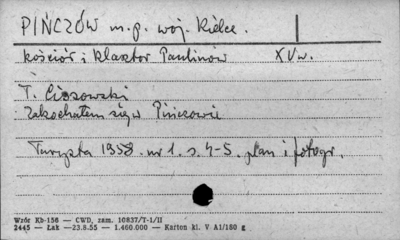 PIŃCZÓW m.p. woj. Kielce.
kościół i klasztor Paulinów XV w.
T. Cissowski
Zakochałem się w Pińczowie
Turysta 1958. nr 1. s. 4-5. plan i fotogr.
Wzór Kb-156 — CWD, zam. 10837/T-1/II
2445 — Łak —23.8.55 — 1.460.000 — Karton kl. V A1/180 g